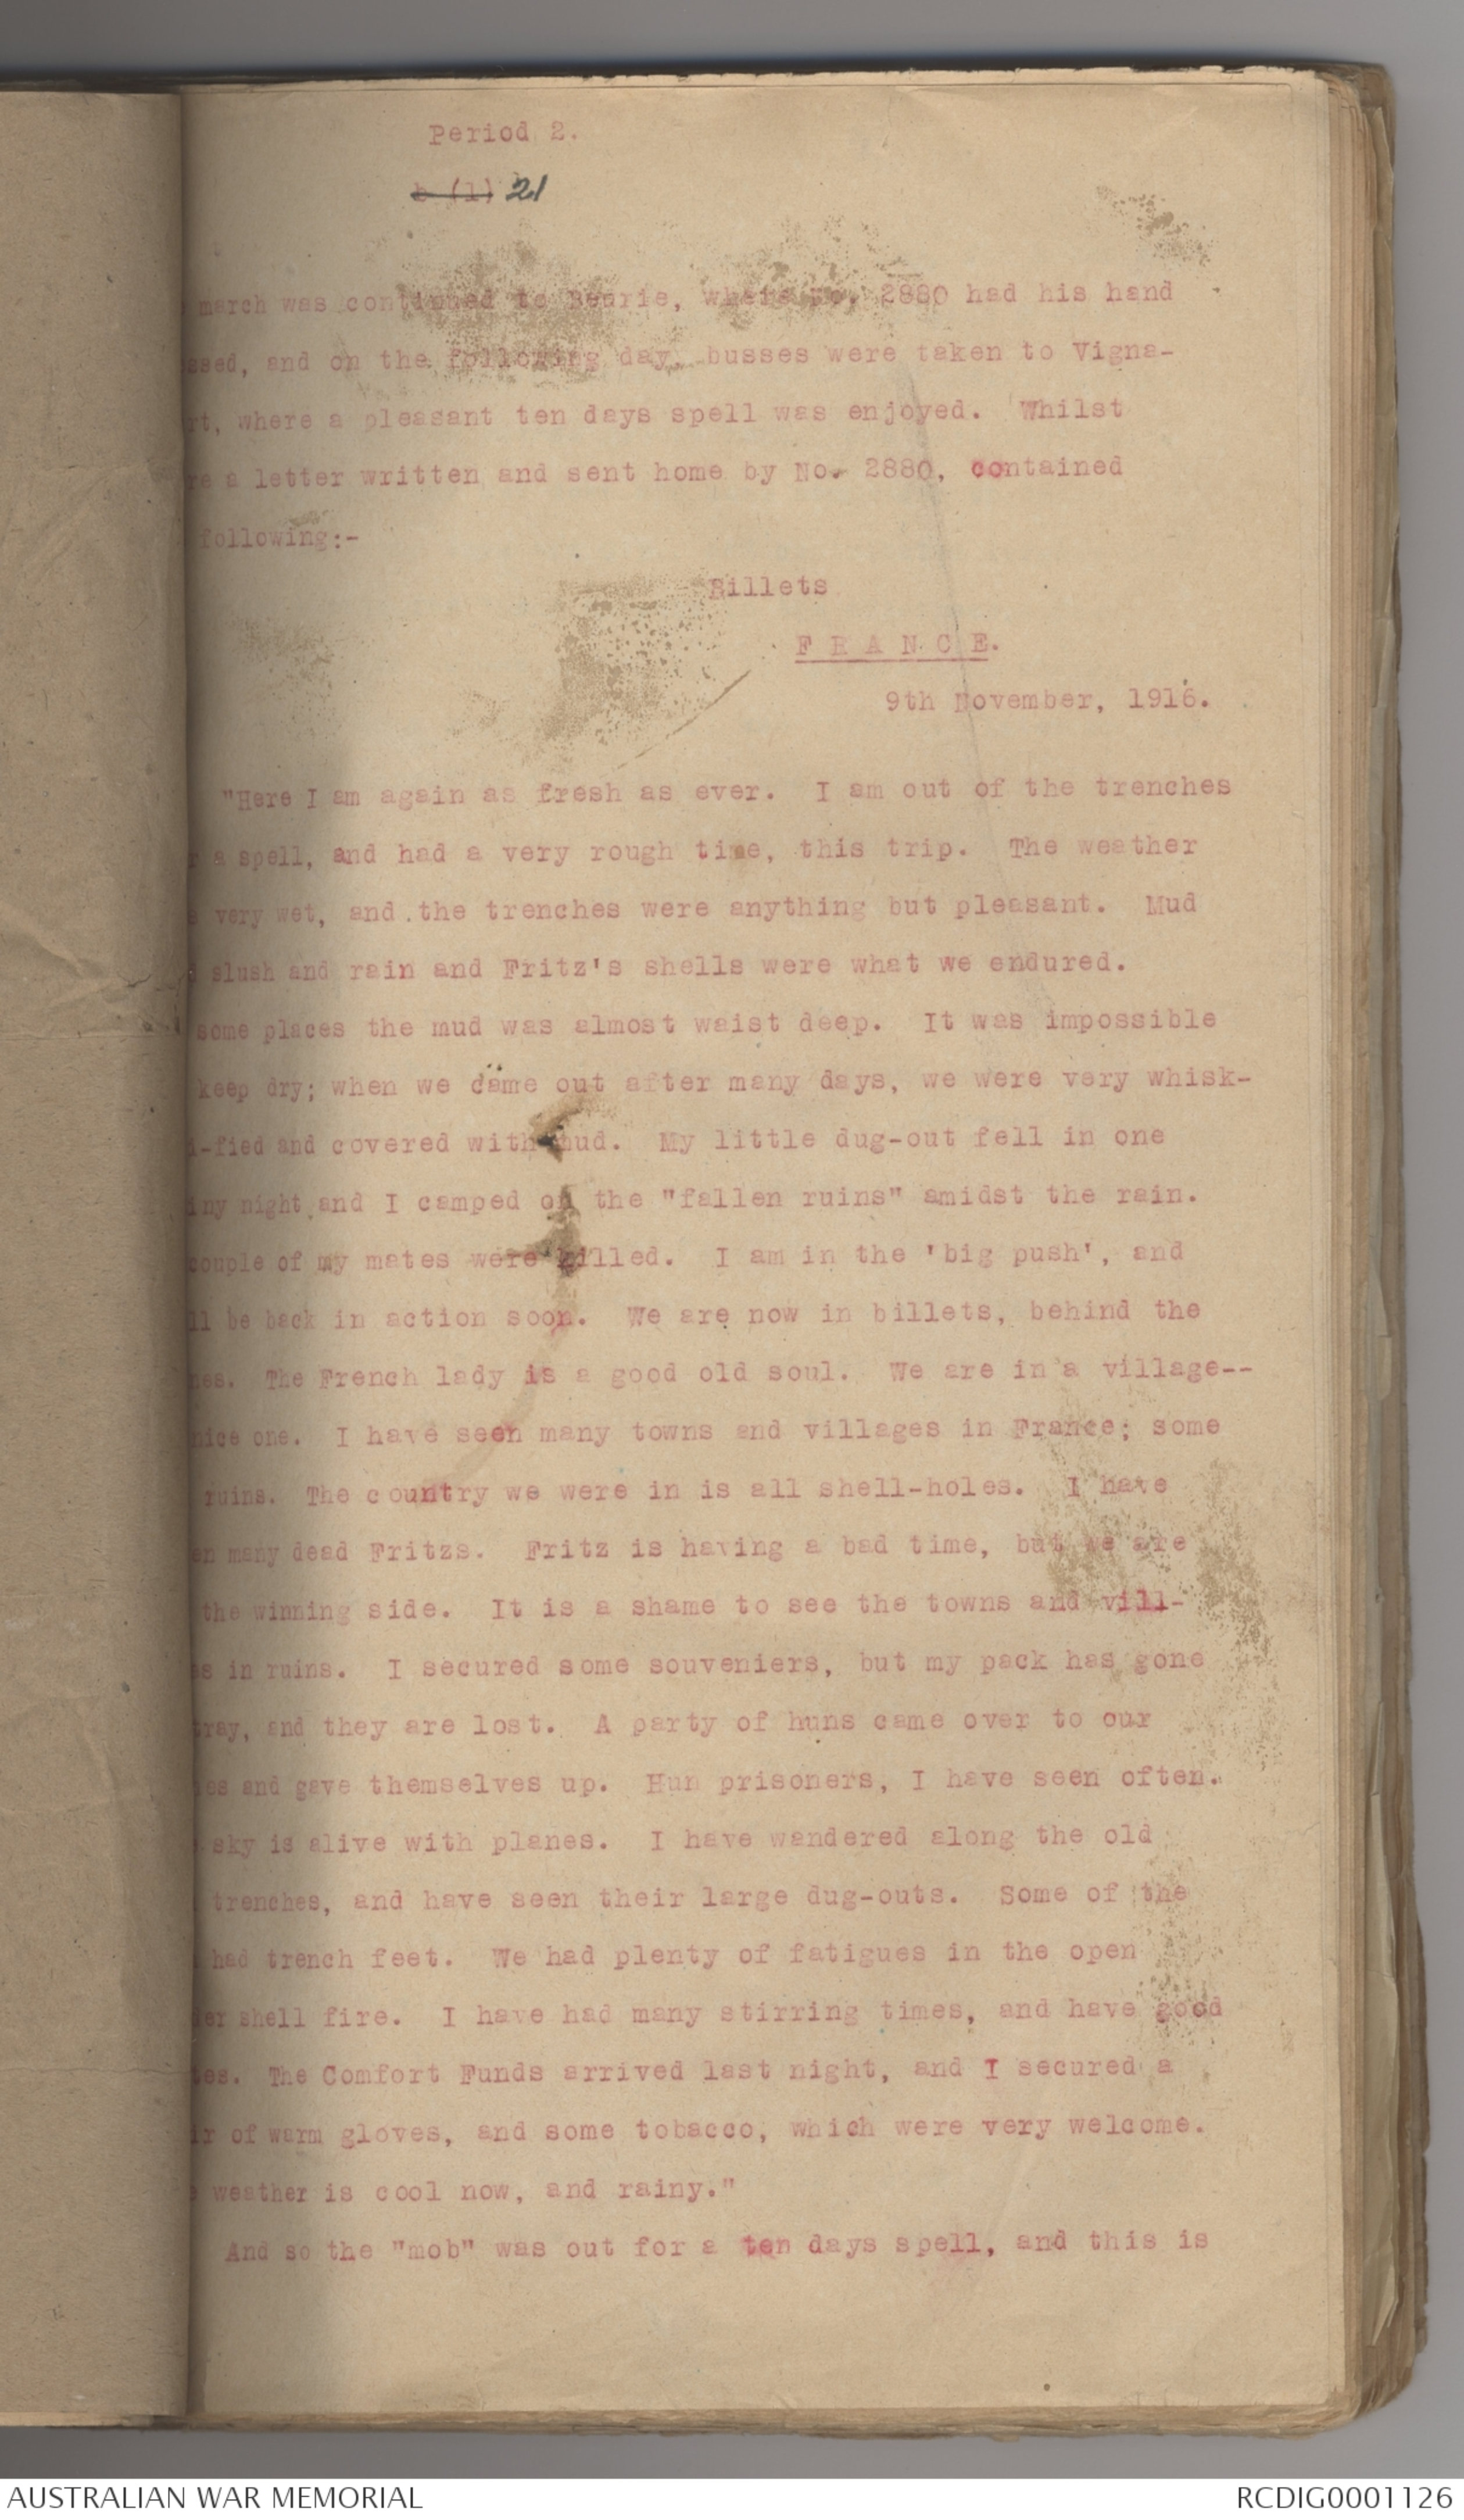 Period 2.
b (1) 21
march was continued to Bearie, where No. 2880 had his hand
ased, and on the following day, busses were taken to Vigna-
rt, where a pleasant ten days spell was enjoyed. Whilst
re a letter written and sent home by No. 2880, contained
following:-
Billets
F R A N C E.
9th November, 1916.
"Here I am again as fresh as ever. I am out of the trenches
r a spell, and had a very rough time, this trip. The weather
s very wet, and the trenches were anything but pleasant. Mud
slush and rain and Fritz's shells were what we endured.
some places the mud was almost waist deep. It was impossible
keep dry; when we came out after many days, we were very whisk-
i-fied and covered with mud. My little dug-out fell in one
iny night and I camped on the "fallen ruins" amidst the rain.
couple of my mates were killed. I am in the 'big push', and
ll be back in action soon. We are now in billets, behind the
nes. The French lady is a good old soul. We are in a village--
nice one. I have seen many towns and villages in France; some
ruins. The country we were in is all shell-holes. I have
en many dead Fritzs. Fritz is having a bad time, but we are
the winning side. It is a shame to see the towns and vill-
es in ruins. I secured some souveniers, but my pack has gone
tray, and they are lost. A party of huns came over to our
nes and gave themselves up. Hun prisoners, I have seen often.
sky is alive with planes. I have wandered along the old
trenches, and have seen their large dug-outs. Some of the
had trench feet. We had plenty of fatigues in the open
der shell fire. I have had many stirring times, and have good
tes. The Comfort Funds arrived last night, and I secured a
ir of warm gloves, and some tobacco, which were very welcome.
weather is cool now, and rainy."
And so the "mob" was out for a ten days spell, and this is
AUSTRALIAN WAR MEMORIAL
RCDIG0001126